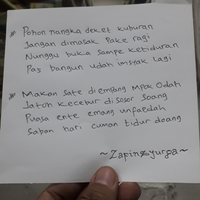 * Pohon nangka deket kuburan
Jangan dimasak pake ragi
Nunggu buka sampe ketiduran
Pas bangun udah imsyak lagi
* Makan sate di empang Mpok Odah
Jatoh kecebur disosor soang
Puasa ente emang unfaedah
Saban hari cuman tidur doang
~Zapin